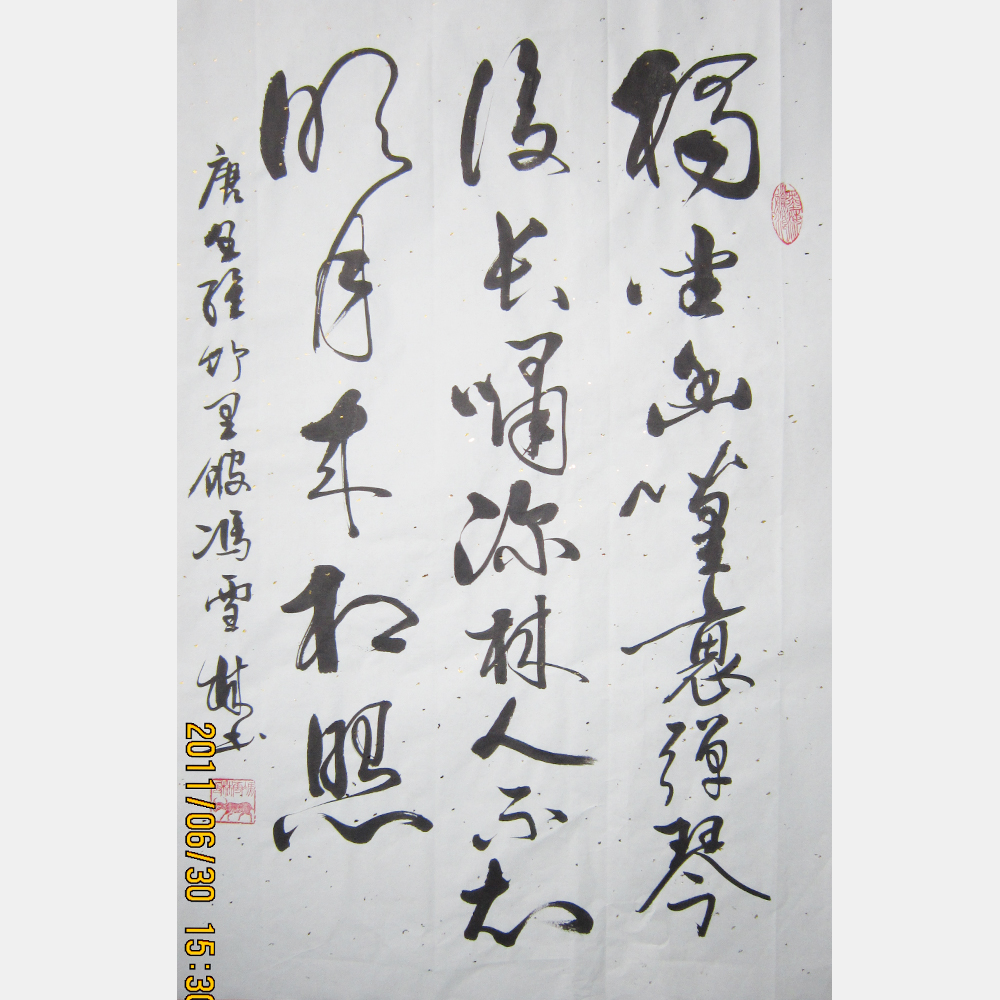 獨坐幽篁裏弹琴
復长嘯深林人不知
明月来相照
唐王維竹里館馮雪书
2011/06/30 15:30